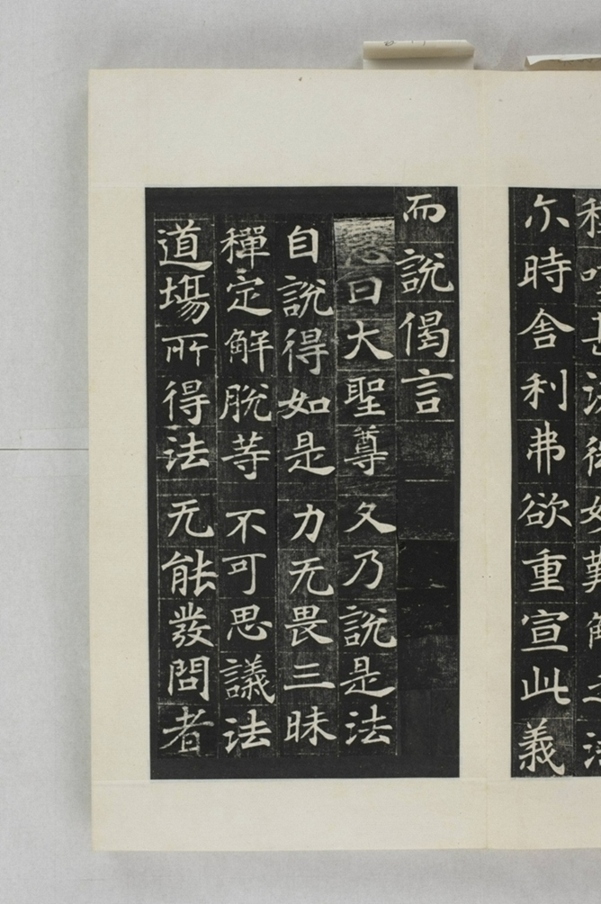 尒時舎利弗欲重宣此義
而說偈言
慧日大聖尊久乃說是法
自說得如是力无畏三昧
禪定解脫等不可思議法
道場所得法无能發問者